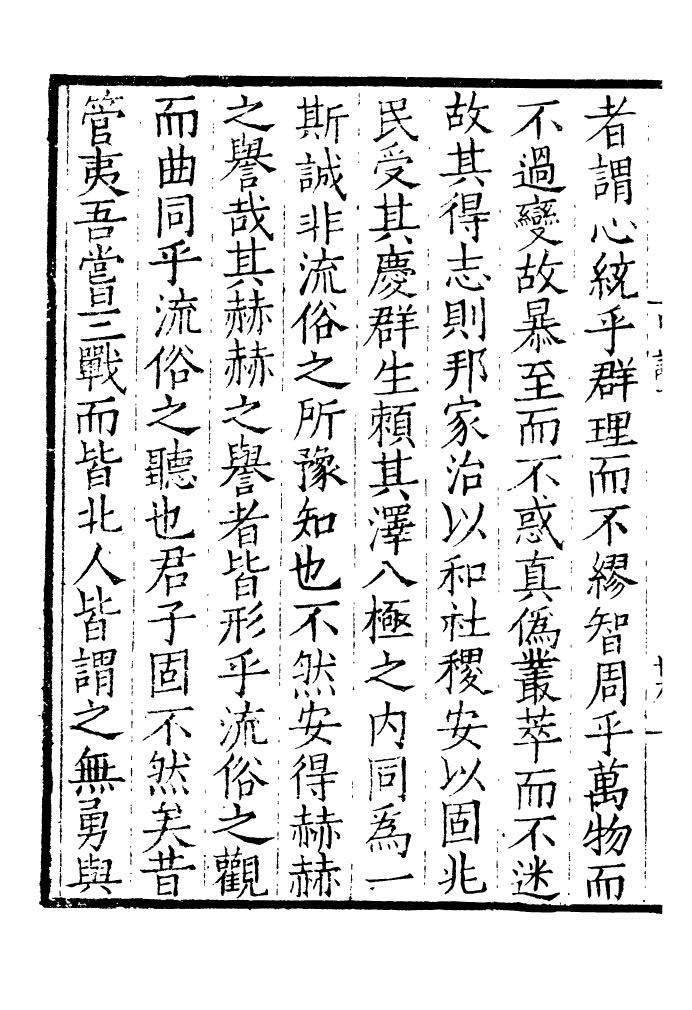 者謂心統乎群理而不繆智周乎萬物而
不過變故暴至而不惑真偽叢萃而不迷
故其得志則邦家治以和社稷安以固兆
民受其慶群生賴其澤八極之内同為一
斯誠非流俗之所豫知也不然安得赫赫
之譽哉其赫赫之譽者皆形乎流俗之觀
而曲同乎流俗之聽也君子固不然矣昔
管夷吾嘗三戰而皆北人皆謂之無勇與